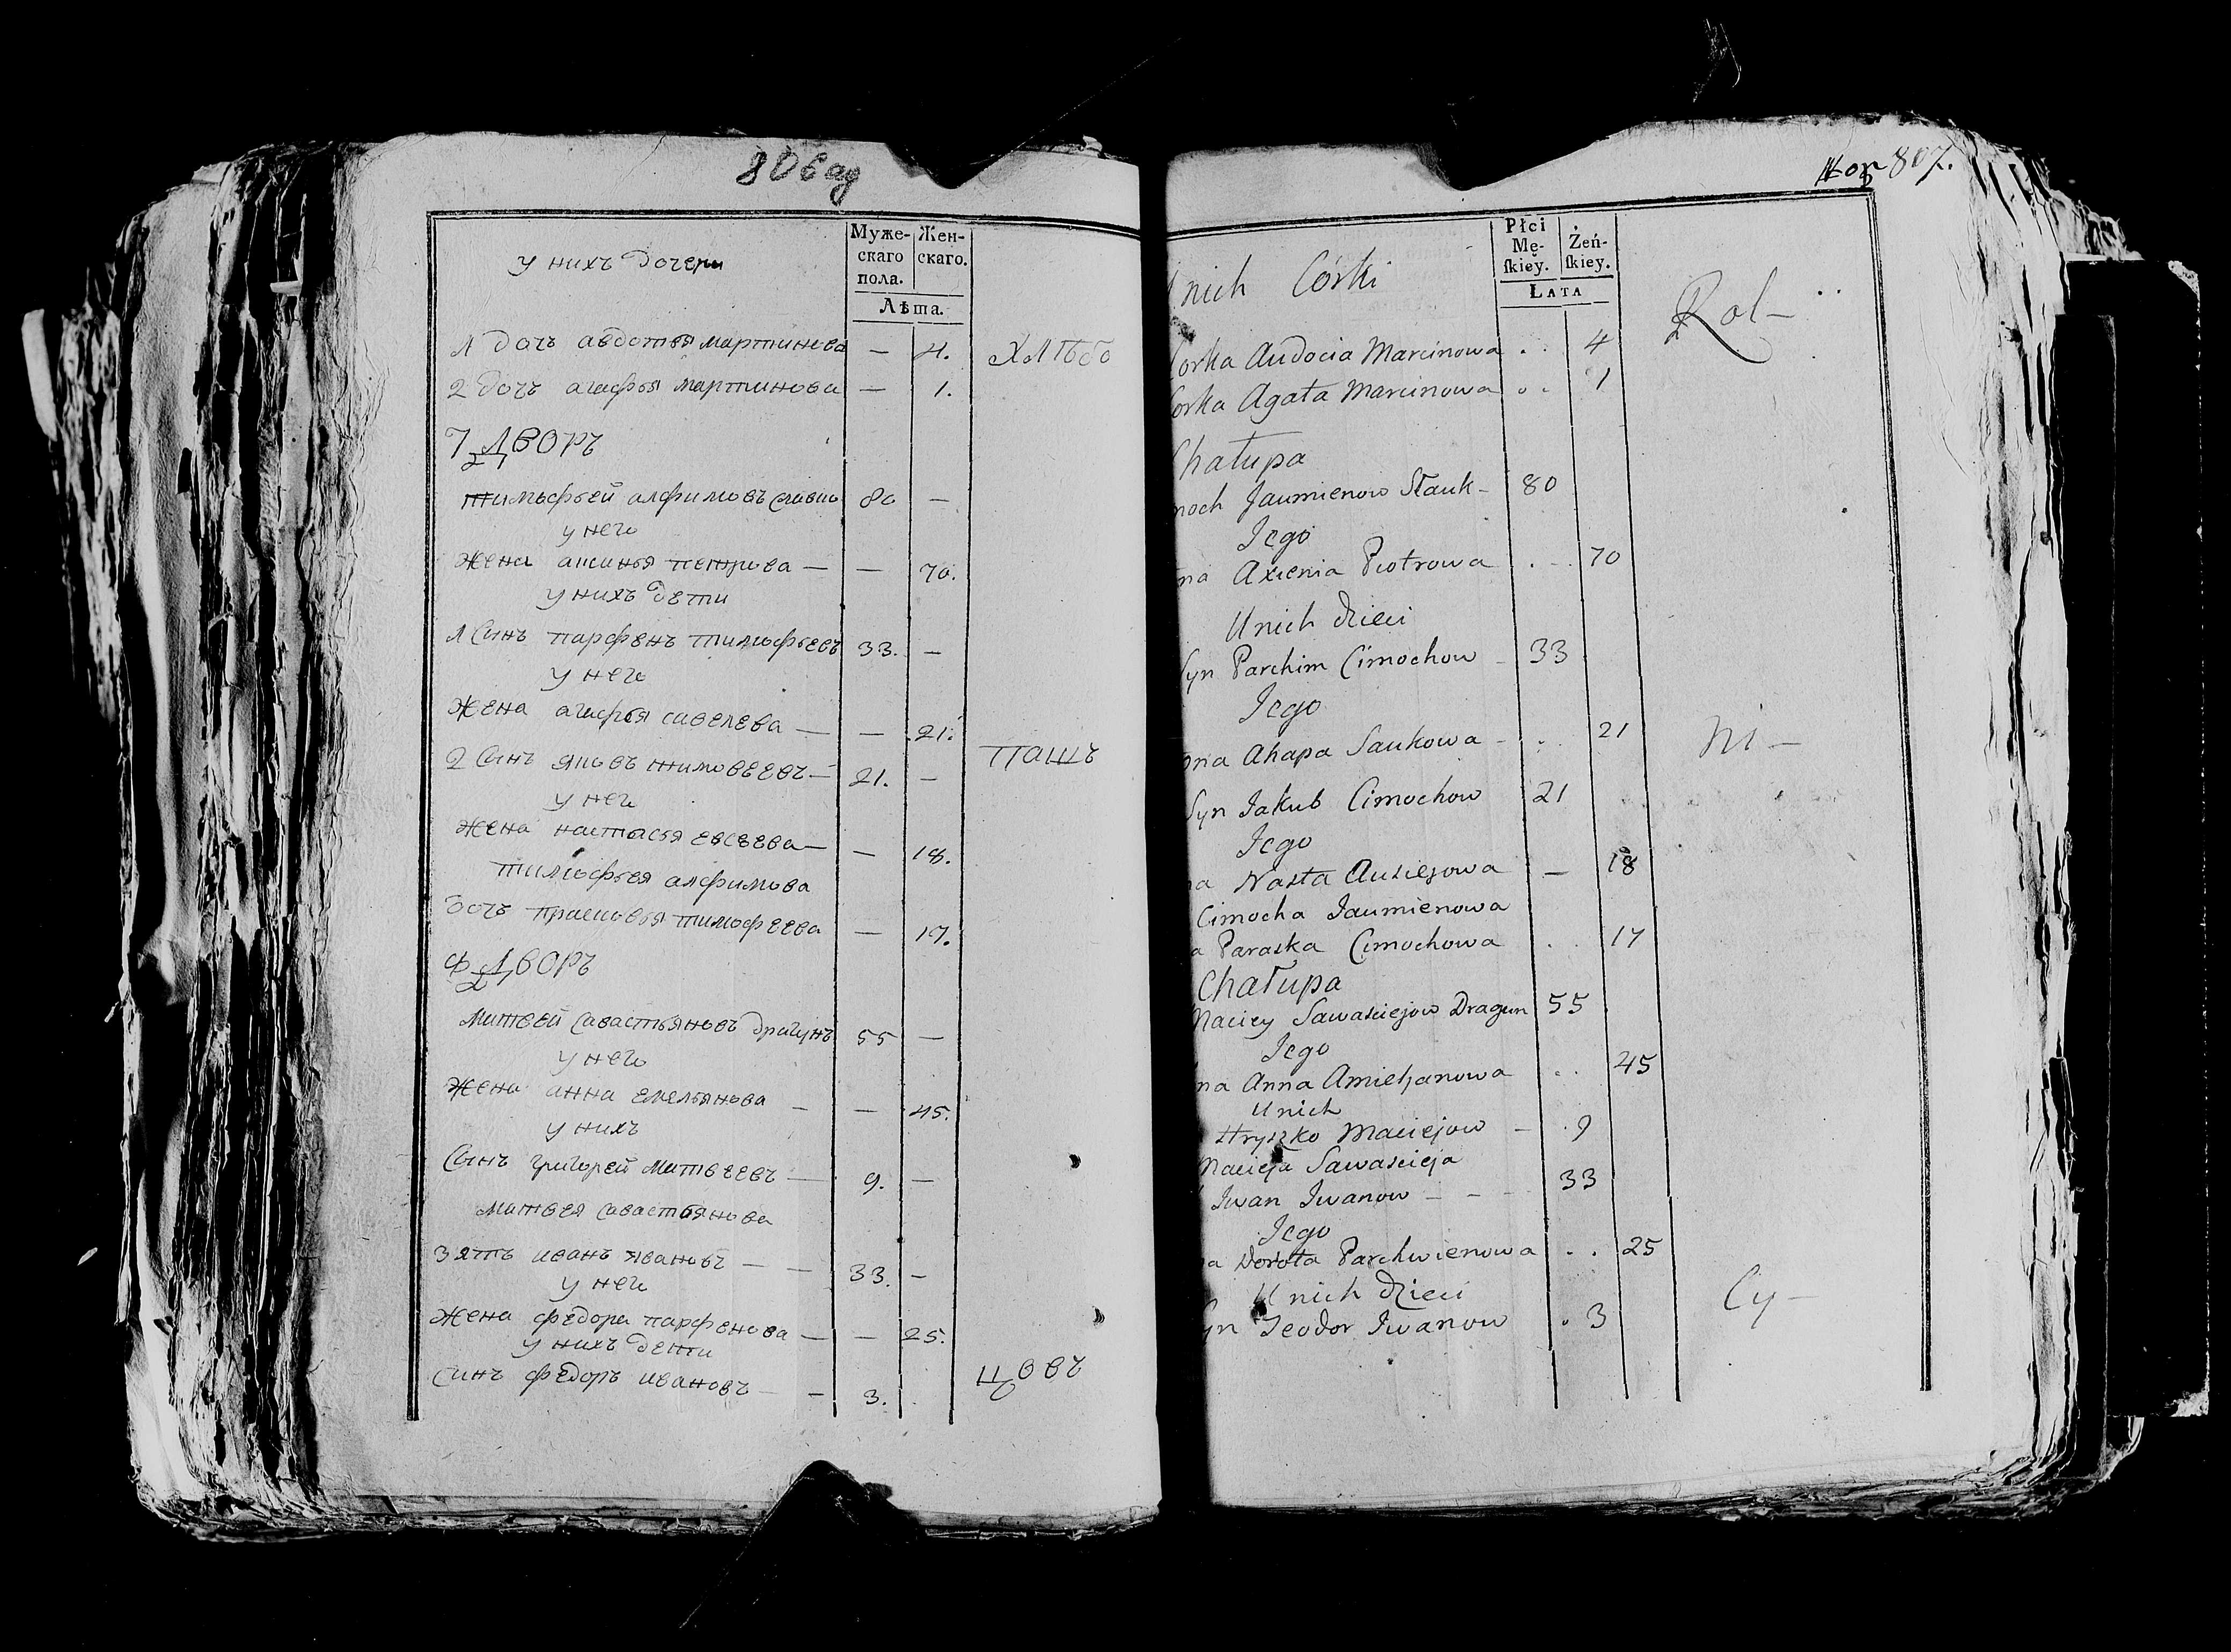 806 ад
Муже-
скаго
пола.
Жен-
скаго.
Лѣта.
у нихъ дочери
1 дочь авдотья мартинова — 4.
хлѣбо
2 дочь агафья мартинова — 1.
7 дворъ
тимофѣей алфимовъ 80 —
у него
жена аксинья петрова — — 70.
у нихъ дети
1 синъ парфенъ тимофѣевъ 33. —
у него
жена агафья савелева — — 21.
пашъ
2 синъ яковъ тимовеевъ — 21. —
у него
жена настасья евсѣева — — 18.
тимофѣя алфимова
дочь прасковья тимофеева — 17.
8 дворъ
матвей савастьяновъ драгунъ 55 —
у него
жена анна емельянова — — 45.
у нихъ
синъ григорей матвѣевъ — 9. —
матвея савастьянова
зять иванъ ивановъ — — 33. —
у него
жена федора парфенова — — 25.
у нихъ дети
синъ федоръ ивановъ — — 3.
цовъ
807.
Płci
Mę-
skiey.
Żeń-
skiey.
Lata
nich Córki
Rol-
orka Audocia Marcinowa . . 4
orka Agata Marcinowa . . 1
Chałupa
moch Jaumienow Stauk- 80
Jego
na Axienia Piotrowa . . 70
Unich dzieci
Syn Parchim Cimochow - 33
Jego
ona Ahapa Saukowa - . . 21
ni-
Syn Jakub Cimochow 21
Jego
a Nasta Ausiejowa — 18
Cimocha Jaumienowa
a Paraska Cimochowa . . 17
Chałupa
Maciey Sawasciejow Dragun 55
Jego
na Anna Amieljanowa . . 45
Unich
Hryszko Maciejow - . 9
Macieja Sawascieja
Iwan Iwanow - - - 33
Jego
a Dorota Parchwienowa . . 25
Unich dzieci
Cy-
yn Teodor Iwanow . 3